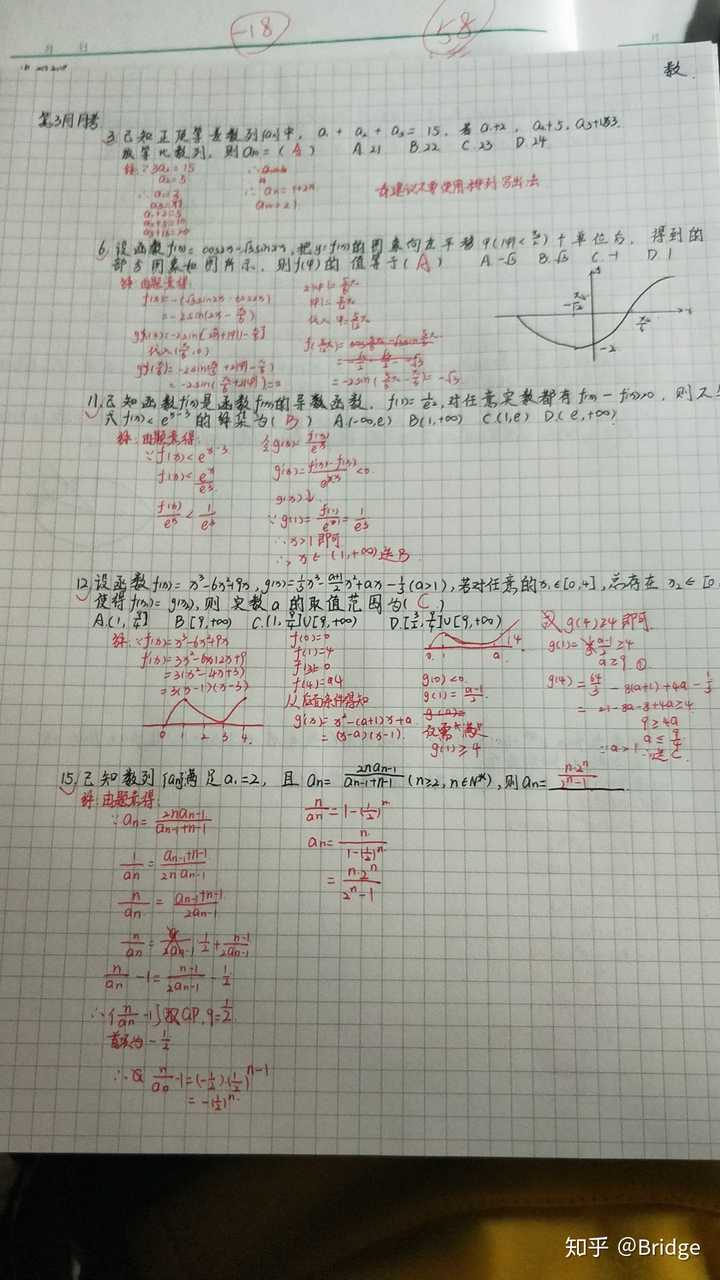 -18 58
月 日
数
第3月月考
3.已知正项等差数列{an}中, a₁+a₂+a₃=15, 若a₁+2, a₂+5, a₃+13
成等比数列, 则a₁₀=(A) A.21 B.22 C.23 D.24
解:∵3a₂=15
a₂=5
∴a₁=3
a₁+2=5
a₂+5=10
∴an=1+2n
a₁₀=21
6.设函数f(x)=cos2x-√3sin2x,把y=f(x)的图象向左平移φ(|φ|<π/2)个单位后, 得到的
部分图象如图所示, 则f(φ)的值等于(A) A.-√3 B.√3 C.-1 D.1
解:由题意得:
f(x)=-(√3sin2x-cos2x)
=-2sin(2x-π/6)
代入(π/6,0)
=-2sin(π/6+2|φ|)=0
-2
x
11.已知函数f'(x)是函数f(x)的导数函数, f(1)=1/e²,对任意实数都有f(x)-f'(x)>0, 则不等
式f(x)<e^(x-3)的解集为(B) A(-∞,e) B(1,+∞) C(1,e) D(e,+∞)
解:由题意得:
∵f(x)<e^(x-3)
f(x)<e^x/e³
f(x)/e^x<1/e³
令g(x)=f(x)/e^x
g(x)↓
∵g(1)=f(1)/e^1=1/e³
∴x>1即可
∴x∈(1,+∞)选B
12.设函数f(x)=x³-6x²+9x, g(x)=1/3x³-(a+1)/2x²+ax-1/3(a>1),若对任意的x₁∈[0,4],总存在x₂∈[0
使得f(x₁)=g(x₂),则实数a的取值范围为(C)
A.(1,9/4] B[9,+∞) C.(1,9/4]∪[9,+∞) D.[3/2,9/4]∪[9,+∞)
解:∵f(x)=x³-6x²+9x
f'(x)=3x²-12x+9
=3(x²-4x+3)
=3(x-1)(x-3)
0 1 2 3 4
f(0)=0
f(1)=4
f(3)=0
f(4)=4
g'(x)=x²-(a+1)x+a
=(x-a)(x-1)
0 1 a 4
g(0)<0
g(1)=(a-1)/2
只需满足
g(1)≥4
又g(4)≥4即可
g(1)=(a-1)/2≥4
a≥9 ①
g(4)=64/3-8(a+1)+4a-1/3
=21-8a-8+4a≥4
9≥4a
a≤9/4
∵a>1∴选C
15.已知数列{an}满足a₁=2, 且an=2na_(n-1)/(a_(n-1)+n-1)(n≥2,n∈N*),则an=n·2ⁿ/(2ⁿ-1)
解:由题意得:
∵an=2na_(n-1)/(a_(n-1)+n-1)
1/an=(a_(n-1)+n-1)/2na_(n-1)
n/an=(a_(n-1)+n-1)/2a_(n-1)
n/an=1/2+(n-1)/2a_(n-1)
n/an-1=(n-1)/2a_(n-1)-1/2
∴{n/an-1}成GP,q=1/2
首项为-1/2
∴n/an-1=(-1/2)·(1/2)^(n-1)
=-(1/2)ⁿ
n/an=1-(1/2)ⁿ
an=n/(1-(1/2)ⁿ)
=n·2ⁿ/(2ⁿ-1)
知乎 @Bridge